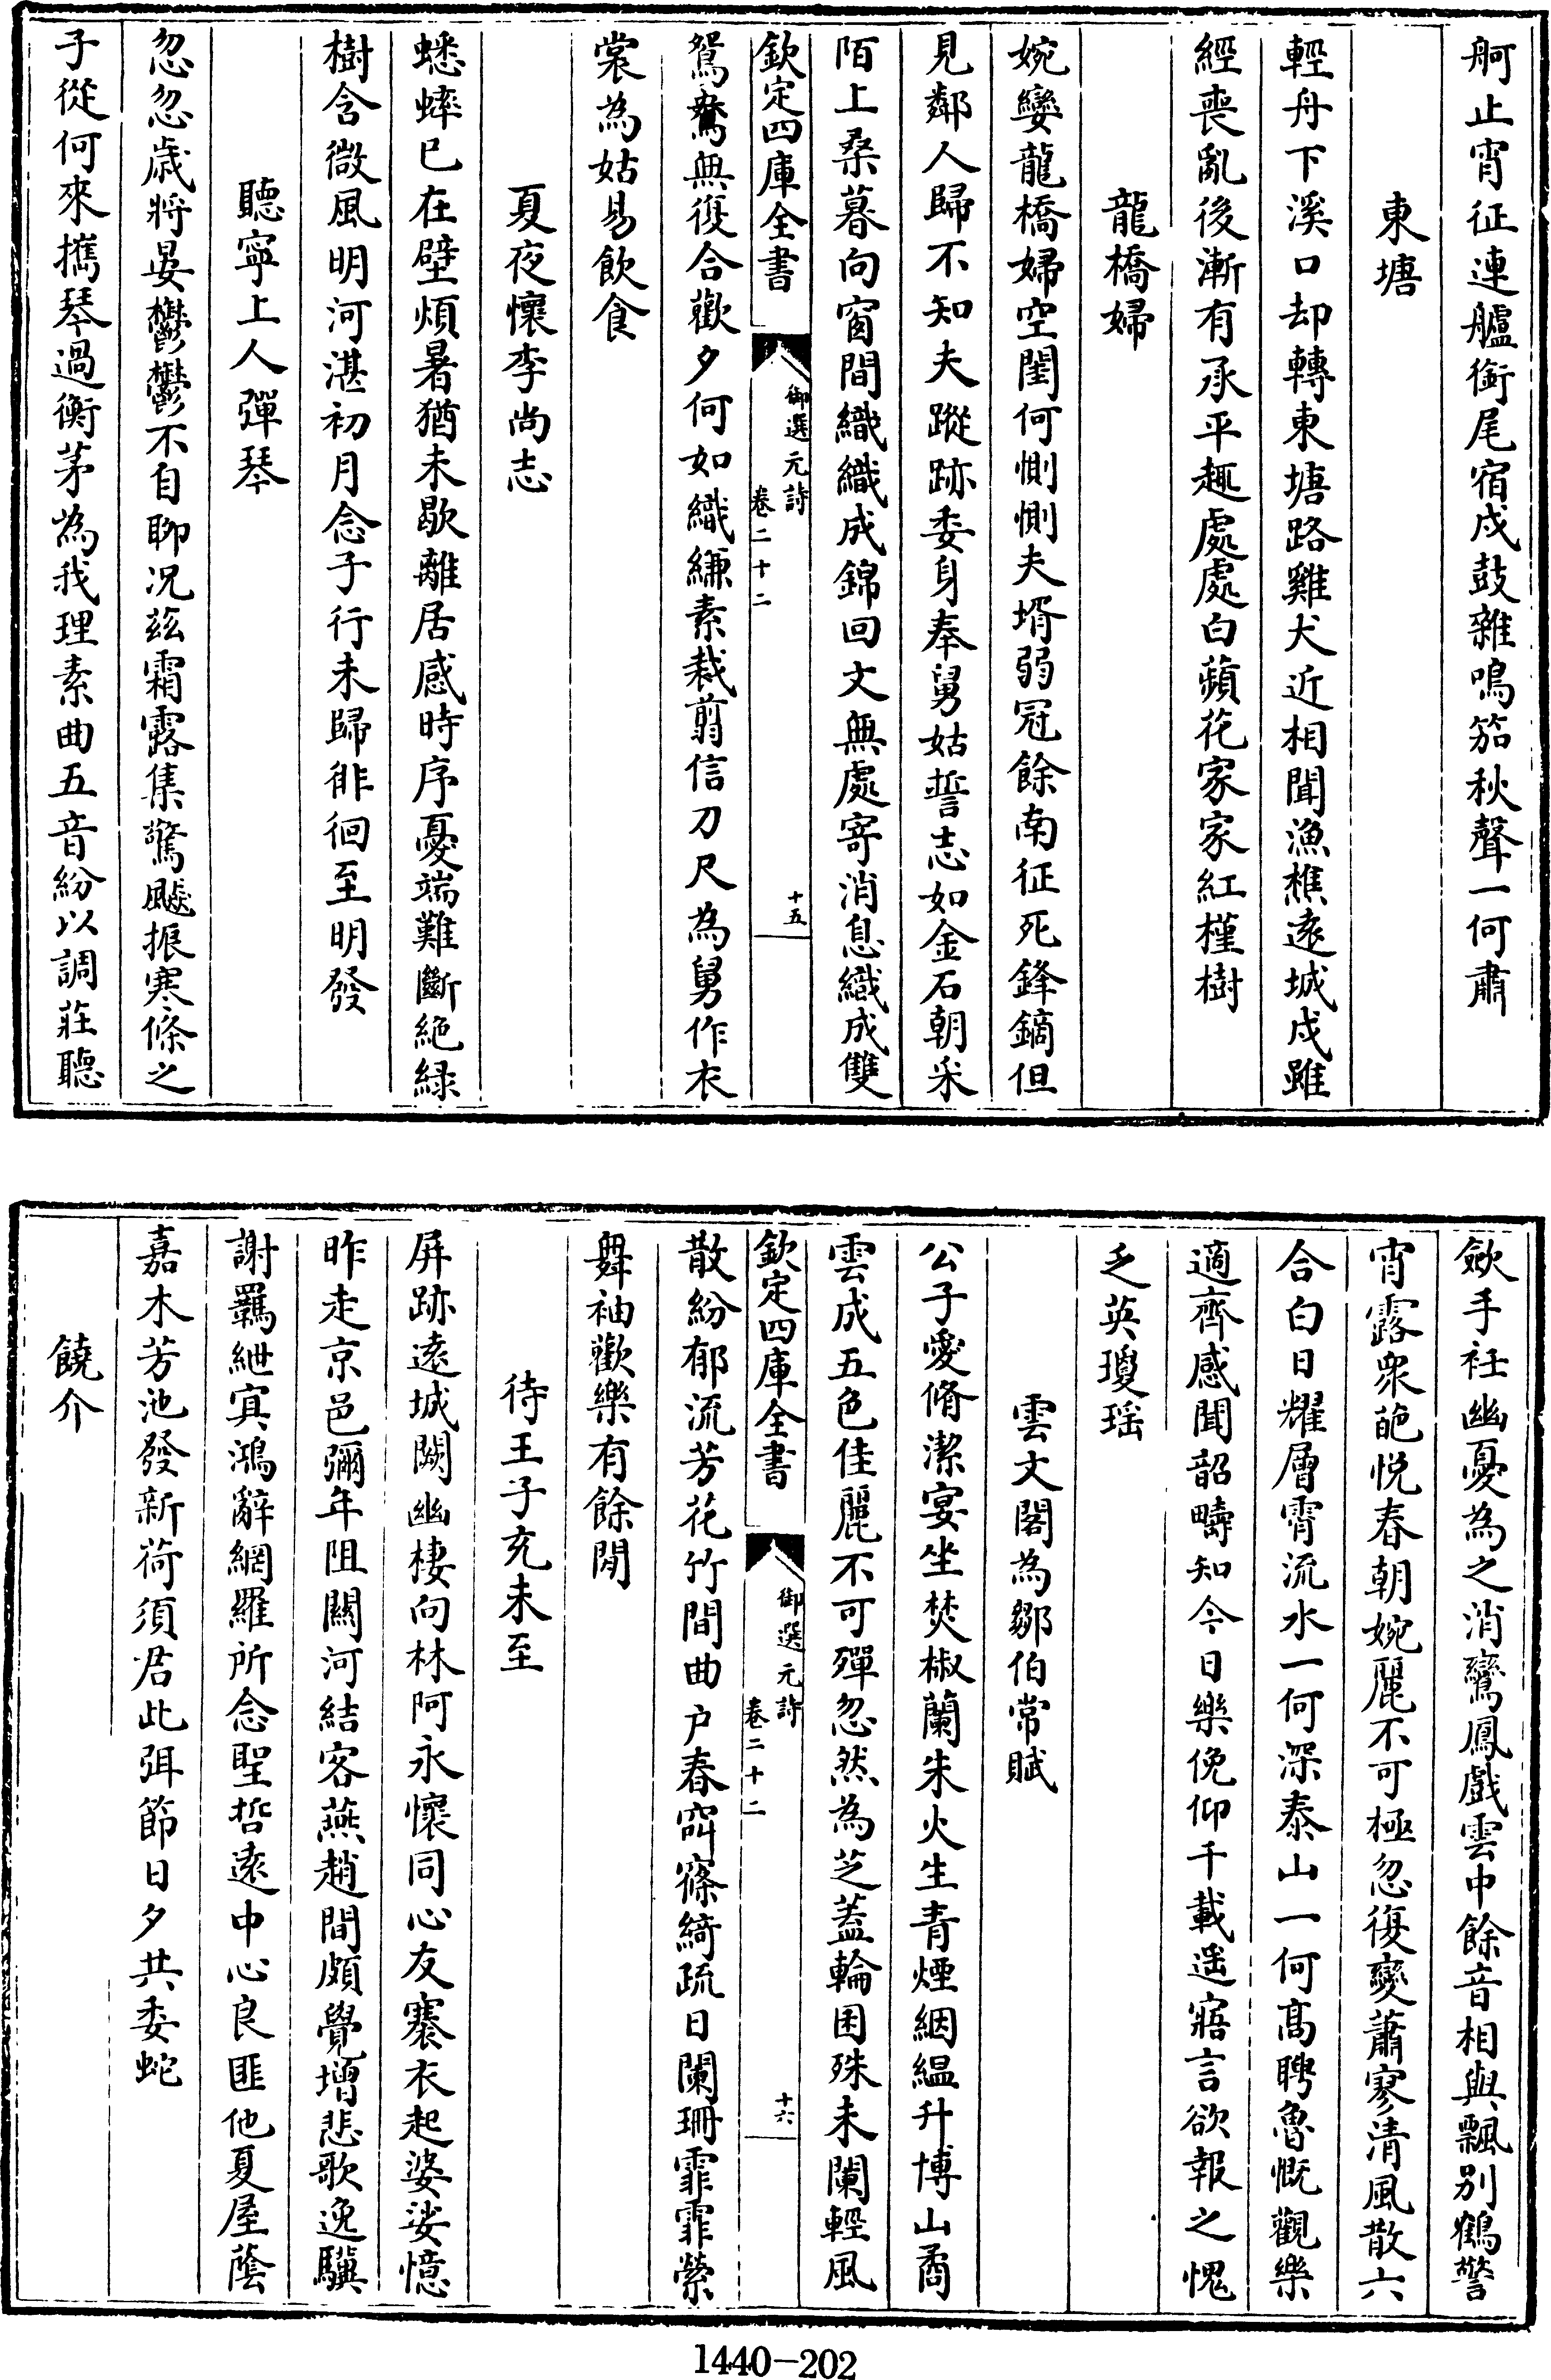 舸止宵征連艫銜尾宿戍鼓雜鳴笳秋聲一何肅
東塘
輕舟下溪口却轉東塘路雞犬近相聞漁樵遠城戍雖
經喪亂後漸有承平趣處處白蘋花家家紅槿樹
龍橋婦
婉孌龍橋婦空閨何惻惻夫壻弱冠餘南征死鋒鏑但
見鄰人歸不知夫蹤跡委身奉舅姑誓志如金石朝采
陌上桑暮向窗間織織成錦回文無處寄消息織成雙
欽定四庫全書
御選元詩
卷二十二
十五
鴛鴦無復合歡夕何如織縑素裁翦信刀尺為舅作衣
裳為姑易飲食
夏夜懷李尚志
蟋蟀已在壁煩暑猶未歇離居感時序憂端難斷絶緑
樹含微風明河湛初月念子行未歸徘徊至明發
聽寧上人彈琴
忽忽歲將晏鬱鬱不自聊况兹霜露集驚飇振寒條之
子從何來攜琴過衡茅為我理素曲五音紛以調莊聽
斂手衽幽憂為之消鸞鳳戲雲中餘音相與飄别鶴警
宵露衆葩悦春朝婉麗不可極忽復變蕭寥清風散六
合白日耀層霄流水一何深泰山一何髙聘魯慨觀樂
適齊感聞韶疇知今日樂俛仰千載遥寤言欲報之愧
乏英瓊瑶
雲文閣為鄒伯常賦
公子愛脩潔宴坐焚椒蘭朱火生青煙絪緼升博山矞
雲成五色佳麗不可殫忽然為芝蓋輪囷殊未闌輕風
欽定四庫全書
御選元詩
卷二十二
十六
散紛郁流芳花竹間曲户春窈窱綺疏日闌珊霏霏縈
舞袖歡樂有餘閒
待王子充未至
屏跡遠城闕幽棲向林阿永懷同心友褰衣起婆娑憶
昨走京邑彌年阻關河結客燕趙間頗覺增悲歌逸驥
謝羈紲寘鴻辭網羅所念聖哲遠中心良匪他夏屋蔭
嘉木芳池發新荷須君此弭節日夕共委蛇
饒介
1440-202